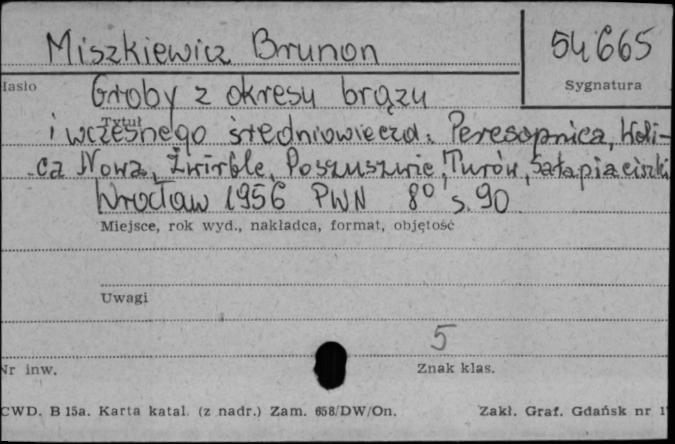 Miszkiewicz Brunon 54665
Hasło Sygnatura
Groby z okresu brązu
Tytuł
i wczesnego średniowiecza: Peresopnica, Heli-
ca Nowa, Żwirble, Poszuszwie, Turów, Sałapiaciszki
Wrocław 1956 PWN 8° s. 90
Miejsce, rok wyd., nakładca, format, objętość
Uwagi
5
Nr inw. Znak klas.
CWD. B 15a. Karta katal. (z nadr.) Zam. 658/DW/On. Zakł. Graf. Gdańsk nr 1